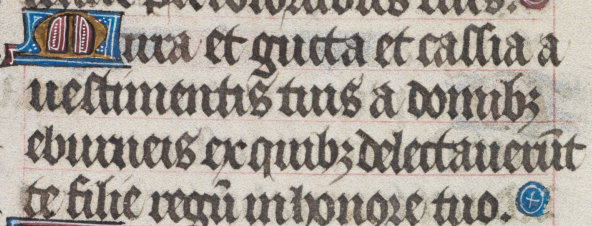 Mirra et gutta et cassia a
uestimentis tuis a domibꝫ
eburneis ex quibꝫ delectauerūt
te filie regū in honore tuo.